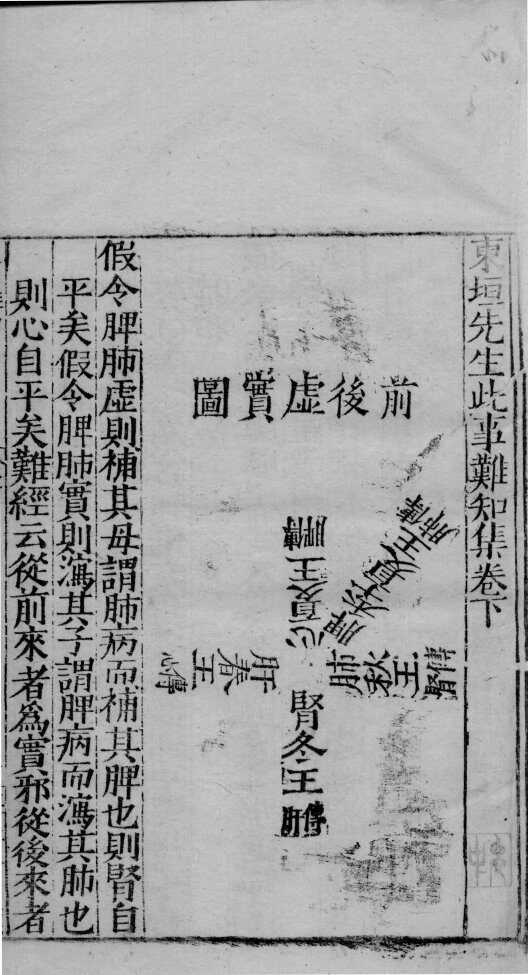 東垣先生此事難知集卷下
前後虛實圖
脾季夏王傳肺
心夏王傳脾
肺秋王傳腎
肝春王傳心
腎冬王傳肝
假令脾肺虛則補其母謂肺病而補其脾也則腎自
平矣假令脾肺實則瀉其子謂脾病而瀉其肺也
則心自平矣難經云從前來者爲實邪從後來者